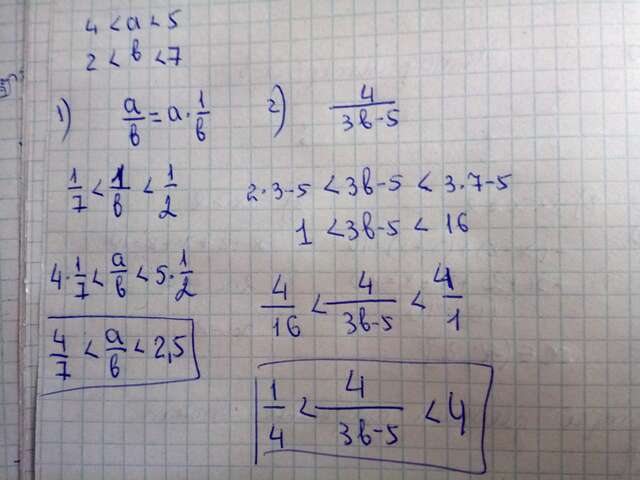 4 < a < 5
2 < b < 7
1) a/b = a · 1/b
1/7 < 1/b < 1/2
4 · 1/7 < a/b < 5 · 1/2
4/7 < a/b < 2,5
2) 4/(3b-5)
2·3-5 < 3b-5 < 3·7-5
1 < 3b-5 < 16
4/16 < 4/(3b-5) < 4/1
1/4 < 4/(3b-5) < 4